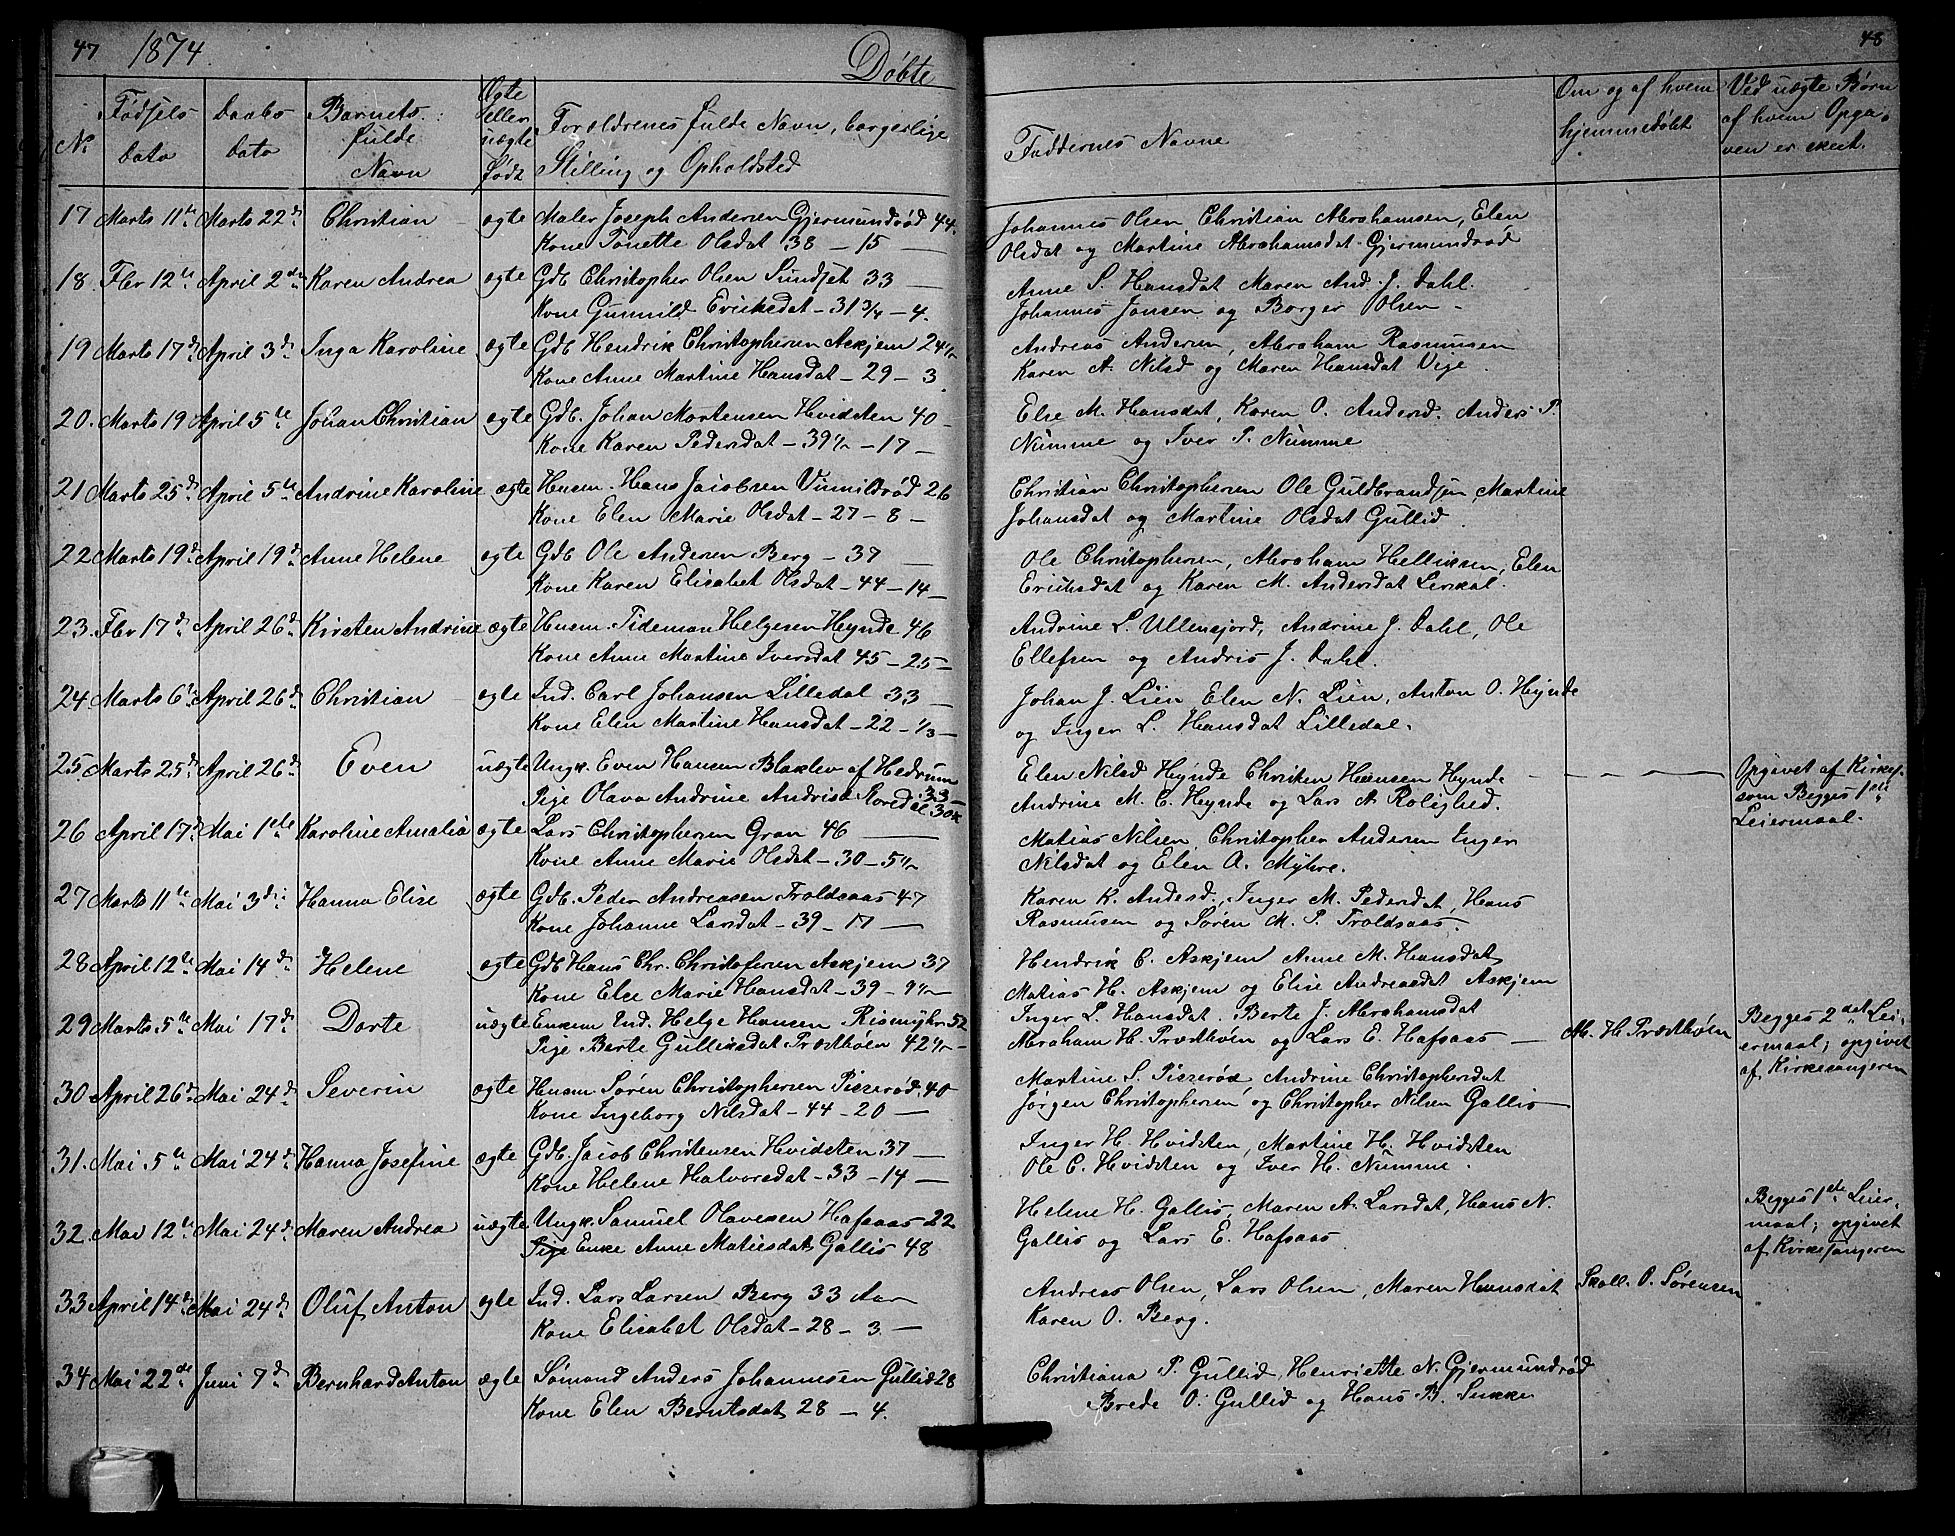 47 1874. Døbte 48
No Fødsels dato Daabs dato Barnets fulde Navn Ægte eller uægte født Forældrenes fulde Navn, borgerlige Stilling og Opholdsted Faddernes Navne Om og af hvem hjemmedøbt Ved uægte Børn af hvem Opgaven er skeet.
17 Marts 11te Marts 22d Christian ægte Maler Joseph Andersen Gjermundrød 44. Johannes Olsen Christian Abrahamsen, Elen
Kone Tonette Olsdat 38 - 15 — Olsdat og Martine Abrahamsdat Gjermundrød
18. Fbr 12te April 2den Karen Andrea ægte Gdb Christopher Olsen Sundset 33 — Anne S. Hansdat Maren And. J. Dahl.
Kone Gunnild Eriksdat - 31 3/4 - 4. Johannes Jonsen og Borger Olsen -
19 Marts 17d April 3d Inga Karoline ægte Gdb Hendrik Christophersen Askjem 24 1/2 Andreas Andersen, Abraham Rasmussen
Kone Anne Martine Hansdat - 29 - 3. Karen A. Nilsd og Maren Hansdat Vige
20. Marts 19 April 5te Johan Christian ægte Gdb. Johan Mortensen Hvidsten 40 - Else M. Hansdat, Karen O. Andersd. Anders P.
Kone Karen Pedersdat - 39 1/2 - 17 - Numme og Iver P. Numme
21 Marts 25d April 5te Andrine Karoline ægte Husm. Hans Jacobsen Vimildrød 26 Christian Christophersen Ole Guldbrandsen, Martine
Kone Elen Marie Olsdat - 27 - 8 - Johansdat og Martine Olsdat Gullid.
22 Marts 19d April 19d Anne Helene ægte Gdb Ole Andersen Berg - 37 — Ole Christophersen, Abraham Helliksen, Elen
Kone Karen Elisabet Olsdat - 44 - 14 - Eriksdat og Karen M. Andersdat Lerskal.
23. Fbr 17d April 26d Kirsten Andrine ægte Husm. Tideman Helgesen Heynde 46 Andrine L. Ullensjord, Andrine J. Dahl, Ole
Kone Anne Martine Iversdat 45 - 25 - Ellefsen og Andris J. Dahl.
24. Marts 6te April 26d Christian ægte Ind. Carl Johansen Lilledal 33 — Johan J. Lien, Elen N. Lien, Anton O. Heynde
Kone Elen Martine Hansdat - 22 - 1/3 — og Inger L. Hansdat Lilledal.
25. Marts 25d April 26d Even uægte Ungk. Even Hansen Blaklev af Hedrum 33 - Elen Nilsd Heynde Chrisken Hansen Heynde — — — Opgivet af Kirkes.
Pige Olava Andrine Andrisd Storedal 30 Andrine M. E. Heynde og Lars A. Rolighed. som Begges 1ste Leiermaal.
26 April 17d Mai 1ste Karoline Amalia ægte Lars Christophersen Gran 46 — Matias Nilsen, Christopher Andersen Inger
Kone Anne Marie Olsdat - 30 - 5 1/2 Nilsdat og Elen A. Myhre.
27 Marts 11te Mai 3die Hanna Elise ægte Gdb. Peder Andreasen Troldsaas 47 Karen K. Andersd, Inger M. Pedersdat, Hans
Kone Johanne Larsdat - 39 - 17 — Rasmussen og Søren M. P. Troldsaas.
28 April 12te Mai 14d Helene ægte Gdb Hans Chr. Christofersen Askjem 37 Hendrik C. Askjem Anne M. Hansdat
Kone Else Marie Hansdat - 39 - 9 1/2 — Matias H. Askjem og Elise Andreasdat Askjem
29 Marts 5te Mai 17d Dorte uægte Enkem Ind. Helge Hansen Rismyhr 52 Inger L. Hansdat. Berte J. Abrahamsdat Ab. H. Præsthøen Begges 2det Lei-
Pige Berte Gulliksdat Præsthøen 42 1/2 - Abraham H. Præsthøen og Lars E. Hafsaas — ermaal; opgivet af Kirkesangeren
30 April 26d Mai 24d Severin ægte Husm. Søren Christophersen Pisserød 40 Martine S. Pisserød Andrine Christophersdat
Kone Ingeborg Nilsdat - 44 - 20 — Jørgen Christophersen og Christopher Nilsen Gallis
31. Mai 5te Mai 24d Hanna Josefine ægte Gdb. Jacob Christensen Hvidsten 37 — Inger H. Hvidsten, Martine H. Hvidsten
Kone Helene Halvorsdat - 33 - 14 — Ole C. Hvidsten og Iver H. Numme.
32. Mai 12te Mai 24d Maren Andrea uægte Ungk. Samuel Olavesen Hafsaas 22 Helene H. Gallis, Maren A. Larsdat, Hans N. Begges 1ste Leier-
Pige Enke Anne Matisdat Gallis 48 Gallis og Lars E. Hafsaas. maal; opgivet af Kirkesangeren
33 April 14d Mai 24d Oluf Anton ægte Ind. Lars Larsen Berg 33 Aar Andreas Olsen, Lars Olsen, Maren Hansdat Skoll. O. Sørensen
Kone Elisabet Olsdat - 28 - 3. — Karen O. Berg.
34 Mai 22de Juni 7d Bernhard Anton ægte Sømand Anders Johannesen Gullid 28 Christiana P. Gullid, Henriette N. Gjermundrød
Kone Elen Berntsdat 28 - 4. Brede O. Gullid og Hans B. Sukke